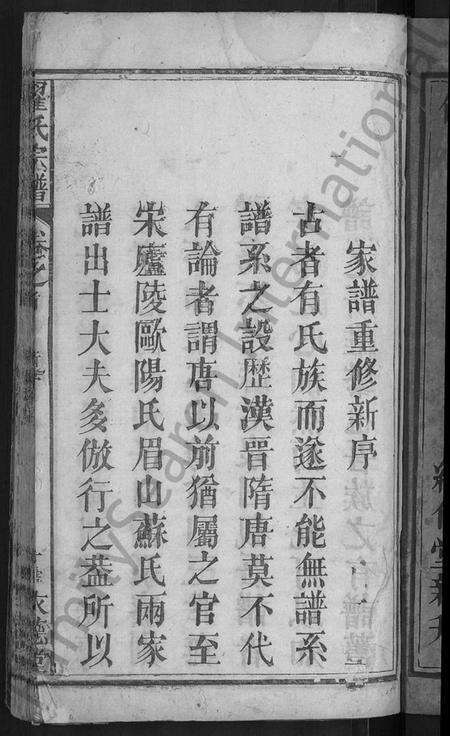 家譜重修新序
古者有氏族而遂不能無譜系
譜系之設歷漢晋隋唐莫不代
有論者謂唐以前猶屬之官至
宋廬陵歐陽氏眉山蘇氏兩家
譜出士大夫多倣行之葢所以
翟氏宗譜
卷之首
FamilySearch International